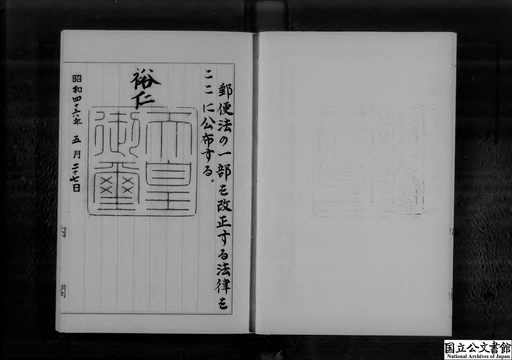 郵便法の一部を改正する法律を
ここに公布する。
裕仁
天皇
御璽
昭和四十六年 五月 二十七日
国立公文書館
National Archives of Japan